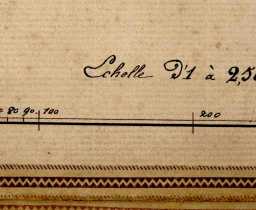 Echelle D'1 à 2,5
80 90 100 200